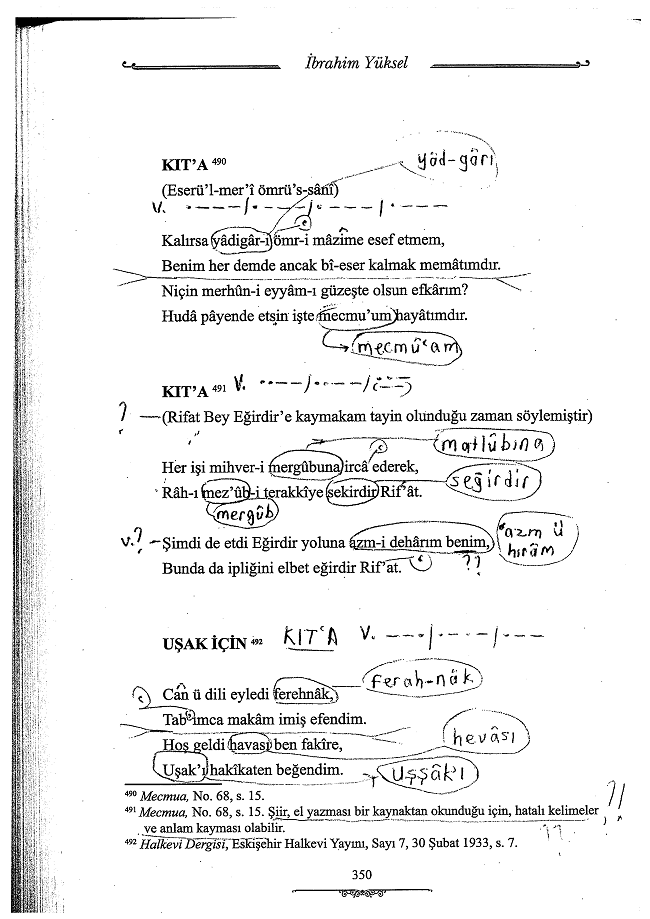 İbrahim Yüksel
yâd-gârı
KIT'A 490
(Eserü'l-mer'î ömrü's-sânî)
V. . – – – / . – – – / . – – – / . – – –
Kalırsa yâdigâr-ı ömr-i mâzime esef etmem,
Benim her demde ancak bî-eser kalmak memâtımdır.
Niçin merhûn-i eyyâm-ı güzeşte olsun efkârım?
Hudâ pâyende etsin işte mecmu'um hayâtımdır.
mecmû'am
KIT'A 491 V. . . – – / . . – – / . . –
? (Rifat Bey Eğirdir'e kaymakam tayin olunduğu zaman söylemiştir)
matlûbına
Her işi mihver-i mergûbuna ircâ ederek,
seğirdir
Râh-ı mez'ûb-i terakkîye sekirdir Rif'at.
mergûb
'azm ü hırâm
V.? Şimdi de etdi Eğirdir yoluna azm-i dehârım benim,
Bunda da ipliğini elbet eğirdir Rif'at. ??
UŞAK İÇİN 492 KIT'A V. – – . / . – . – / . – –
ferah-nâk
Can ü dili eyledi ferehnâk,
Tab'ımca makâm imiş efendim.
Hoş geldi havasi ben fakîre,
hevâsı
Uşak'ı hakîkaten beğendim.
Uşşâk'ı
490 Mecmua, No. 68, s. 15.
491 Mecmua, No. 68, s. 15. Şiir, el yazması bir kaynaktan okunduğu için, hatalı kelimeler ?!
ve anlam kayması olabilir. ??
492 Halkevi Dergisi, Eskişehir Halkevi Yayını, Sayı 7, 30 Şubat 1933, s. 7.
350